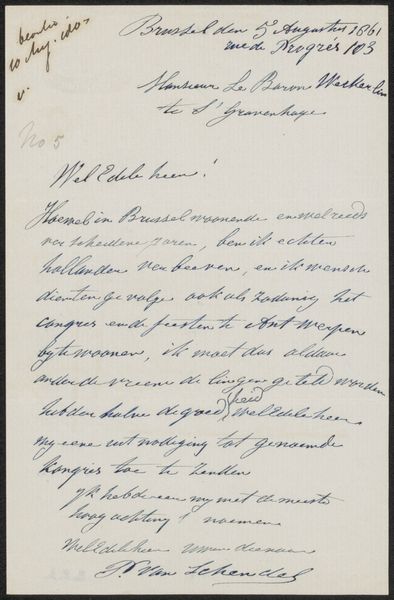 beantw
10 Aug.
No 5
Brussel den 5 Augustus 1861
rue de Progrés 103
Monsieur Le Baron Weckerlin
te S'Gravenhage
Wel Edele heer!
Hoewel in Brussel woonende en wel reeds
verscheidene jaren, ben ik echter
hollander verbleven, en ik wensch
dientengevolge ook als zodanig het
Congres en de feesten te Antwerpen
by te woonen, ik moet dus aldaar
onder de vreemdelingen geteld worden
heb dan halve de goedheid WelEdele heer
my eene uitnodiging tot genoemde
Kongres toe te zenden
Ik heb de eer my met de meeste
hoogachting te noemen
WelEdele heer Uwen dienaar
P. Van Schendel